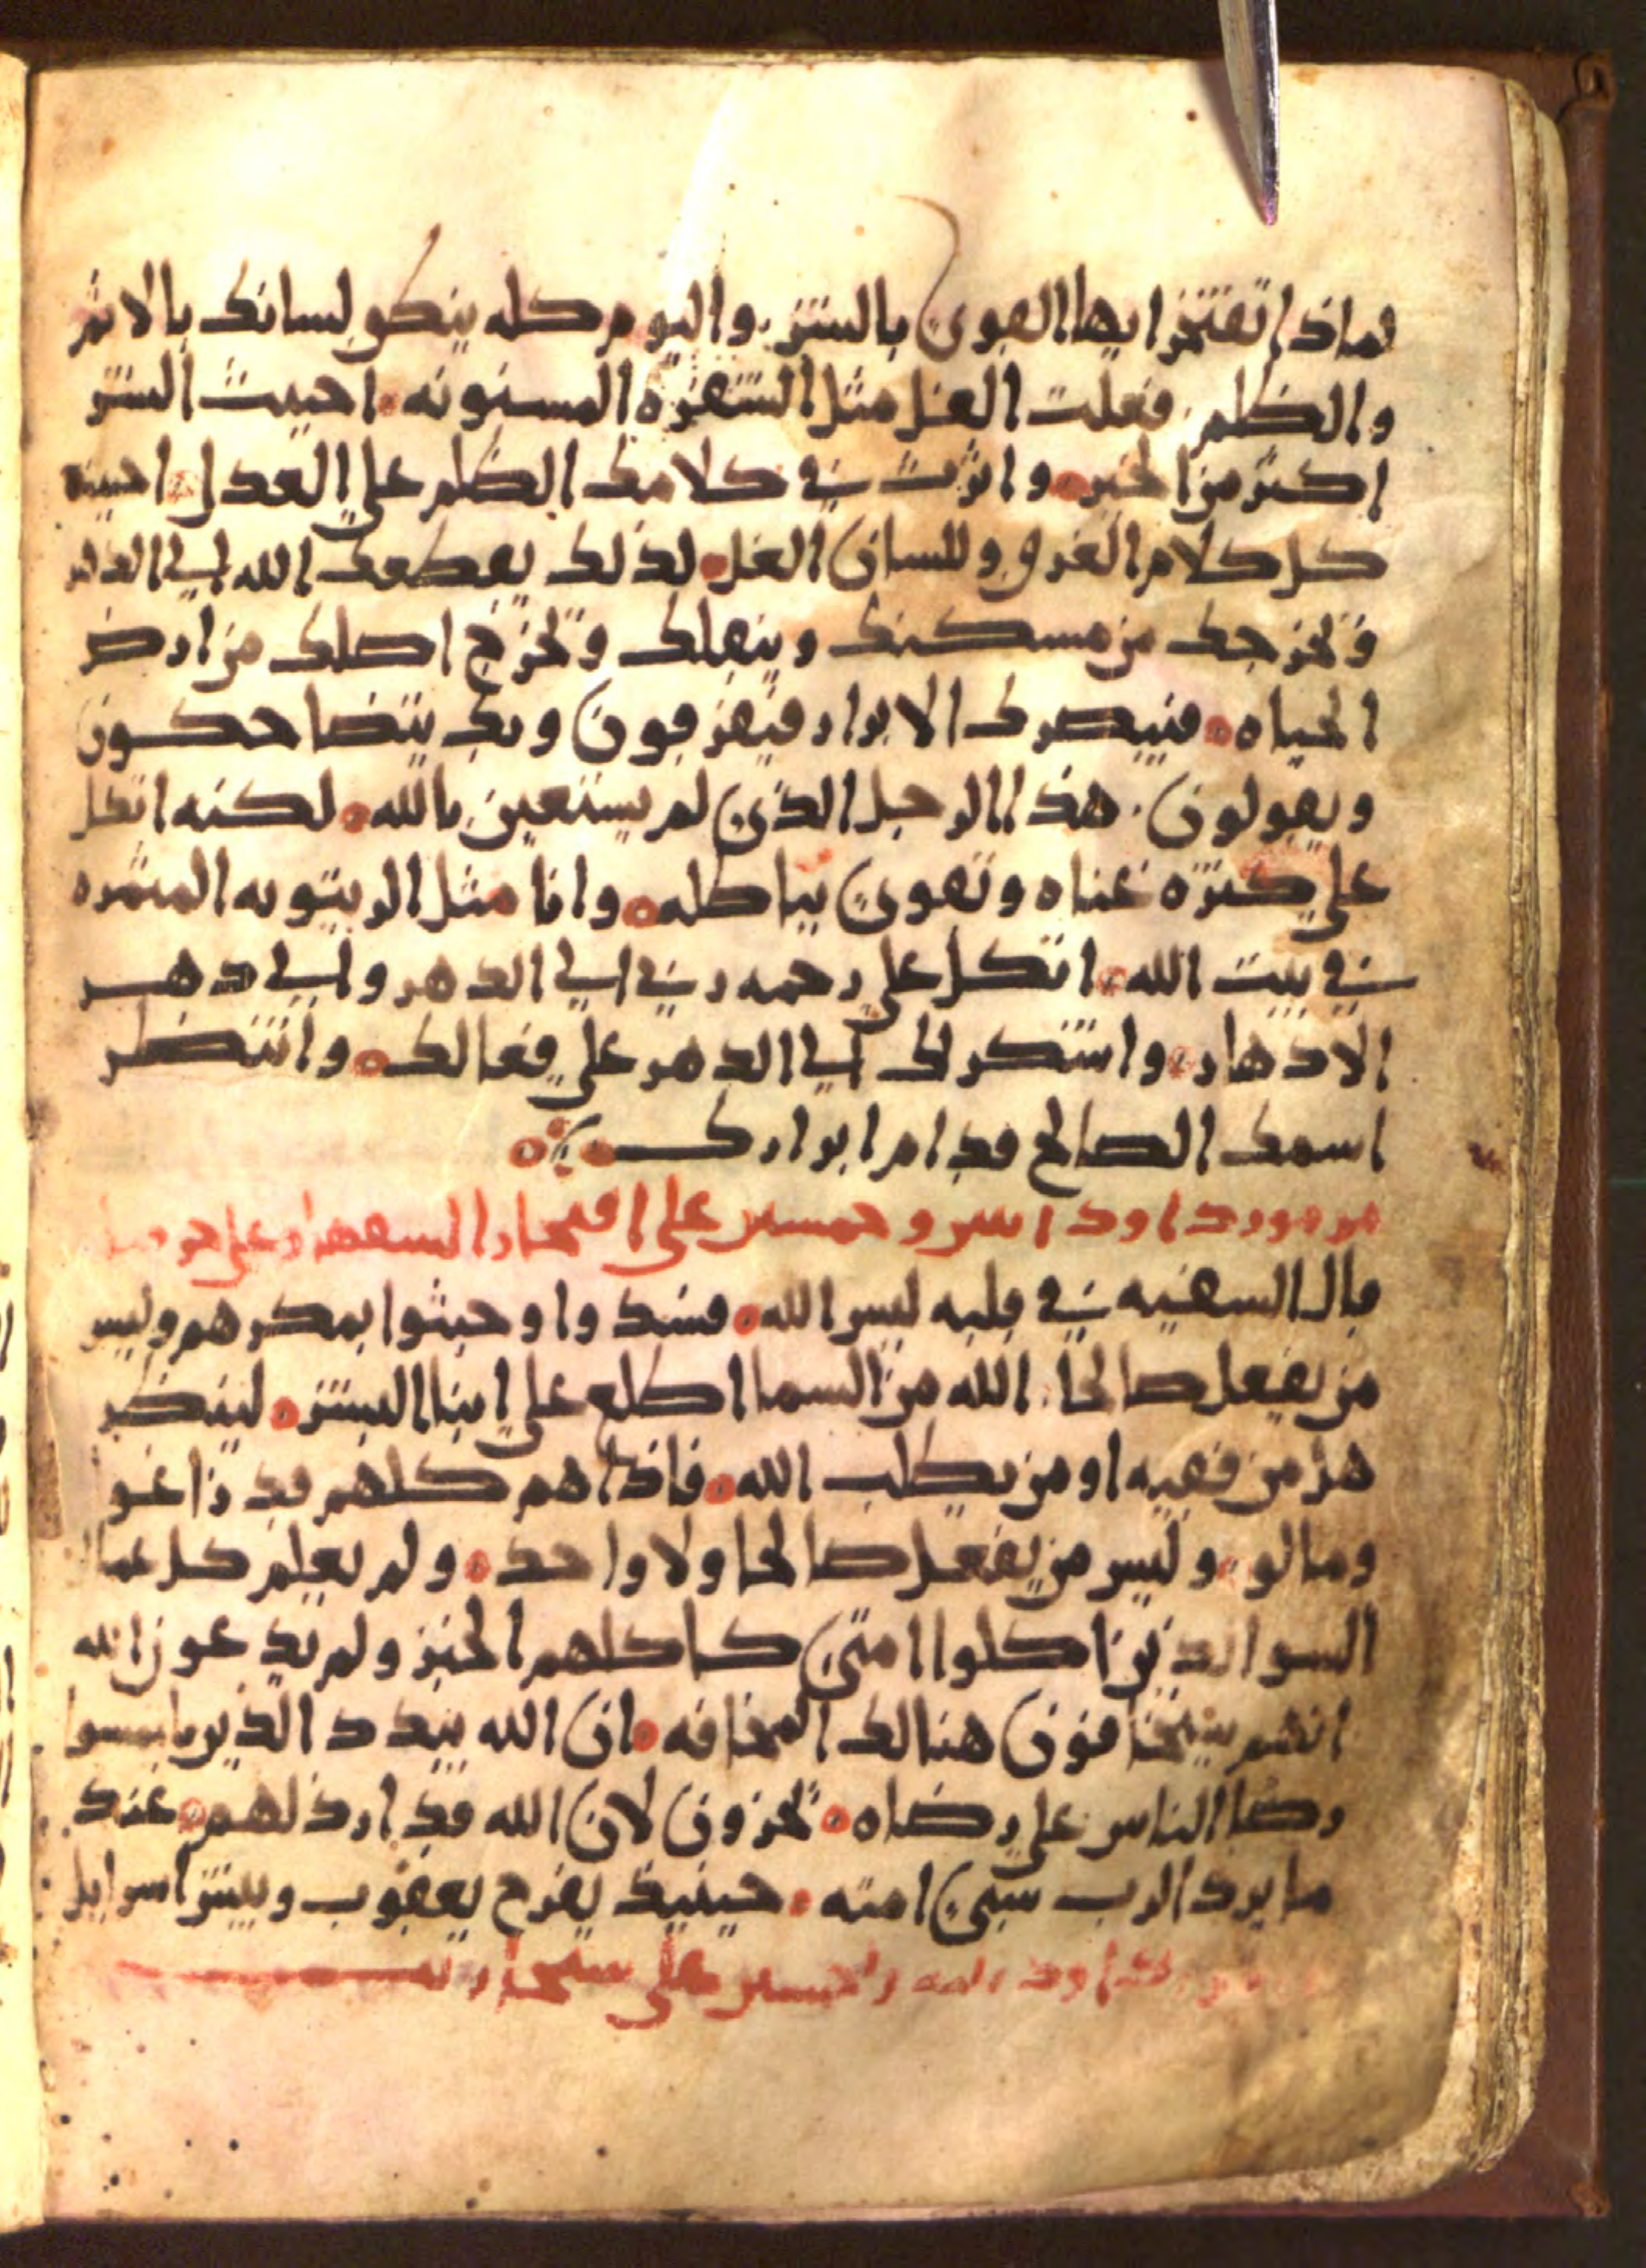 لماذا تفتخر ايها القوي بالشر واليوم كله ينطق لسانك بالاثم
والظلم فعلت الغل مثل الشفره المسنونه احببت الشر
اكثر من الخير واثرت في كلامك الظلم علي العدل احببت
كل كلام الغرق وللسان الغل لذلك يقطعك الله الي الدهر
ويخرجك من مسكنك وينقلك ويخرج اصلك من ارض
الحياه فيبصرك الابرار فيفرقون وبك يتضاحكون
ويقولون هذا الرجل الذي لم يستعين بالله لكنه اتكل
علي كثره غناه وتقوي بباطله وانا مثل الزيتونه المثمره
في بيت الله اتكل علي رحمه ربي الي الدهر والي دهر
الادهار واشكر لك الي الدهر علي فعالك وانتظر
اسمك الصالح قدام ابرارك
مزمور داود اثنين وخمسين علي افتخار السفهاء وعلي
قال السفيه في قلبه ليس الله فسدوا وخبثوا بمكرهم وليس
من يفعل صالحا الله من السما اطلع علي ابنا البشر لينظر
هل من فقيه او من يطلب الله فاذا هم كلهم قد زاغو
ومالو وليس من يفعل صالحا ولا واحد ولم يعلم كل عمال
السو الذين اكلوا امتي كاكلهم الخبز ولم يدعون الله
انهم سيخافون هنالك المخافه ان الله يبدد الذين يلتمسوا
رضا الناس علي رضاه يخزون لان الله قد ارذلهم عند
ما يرد الرب سبي امته حينيذ يفرح يعقوب ويبشر اسرايل
داود ثلثه وخمسين علي